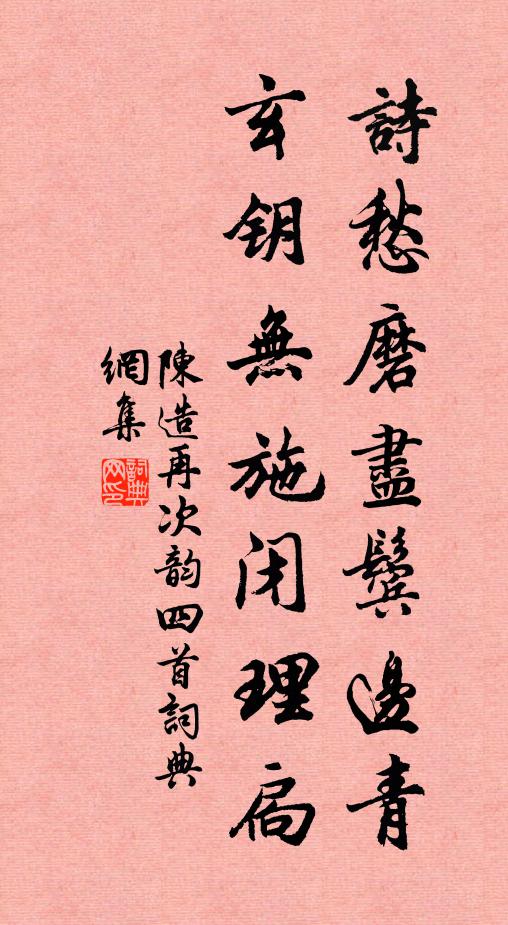 詩愁磨盡鬓邊青
玄钥無施闭理扃
陳造再次韵四首詞典
網集
詞典
网印